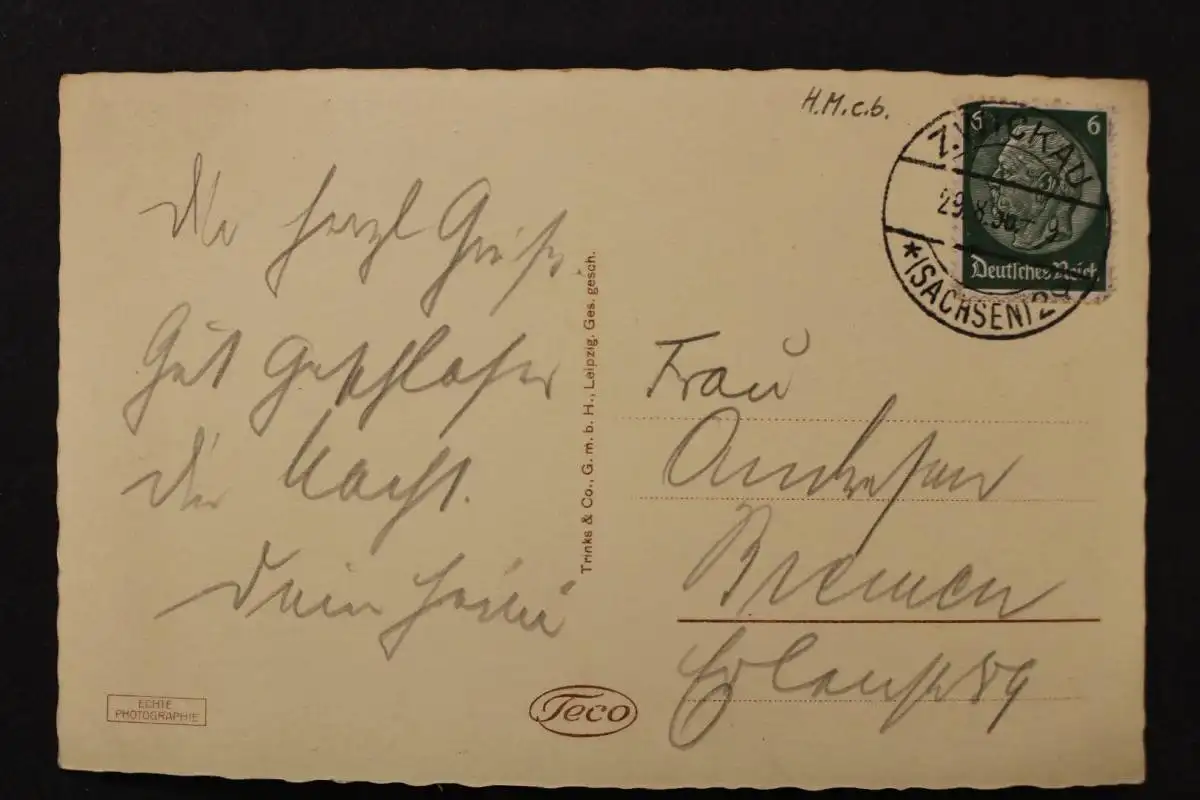 H.M.c.b.
ZWICKAU
29.8.36.-9
* (SACHSEN) 2
6 6
Deutsches Reich
Die herzl Grüße
Gut geschlafen
die Nacht.
Dein Heini
Trinks & Co., G. m. b. H., Leipzig. Ges. gesch.
Frau
Andresen
Bremen
Erlenstr 89
ECHTE
PHOTOGRAPHIE
Teco